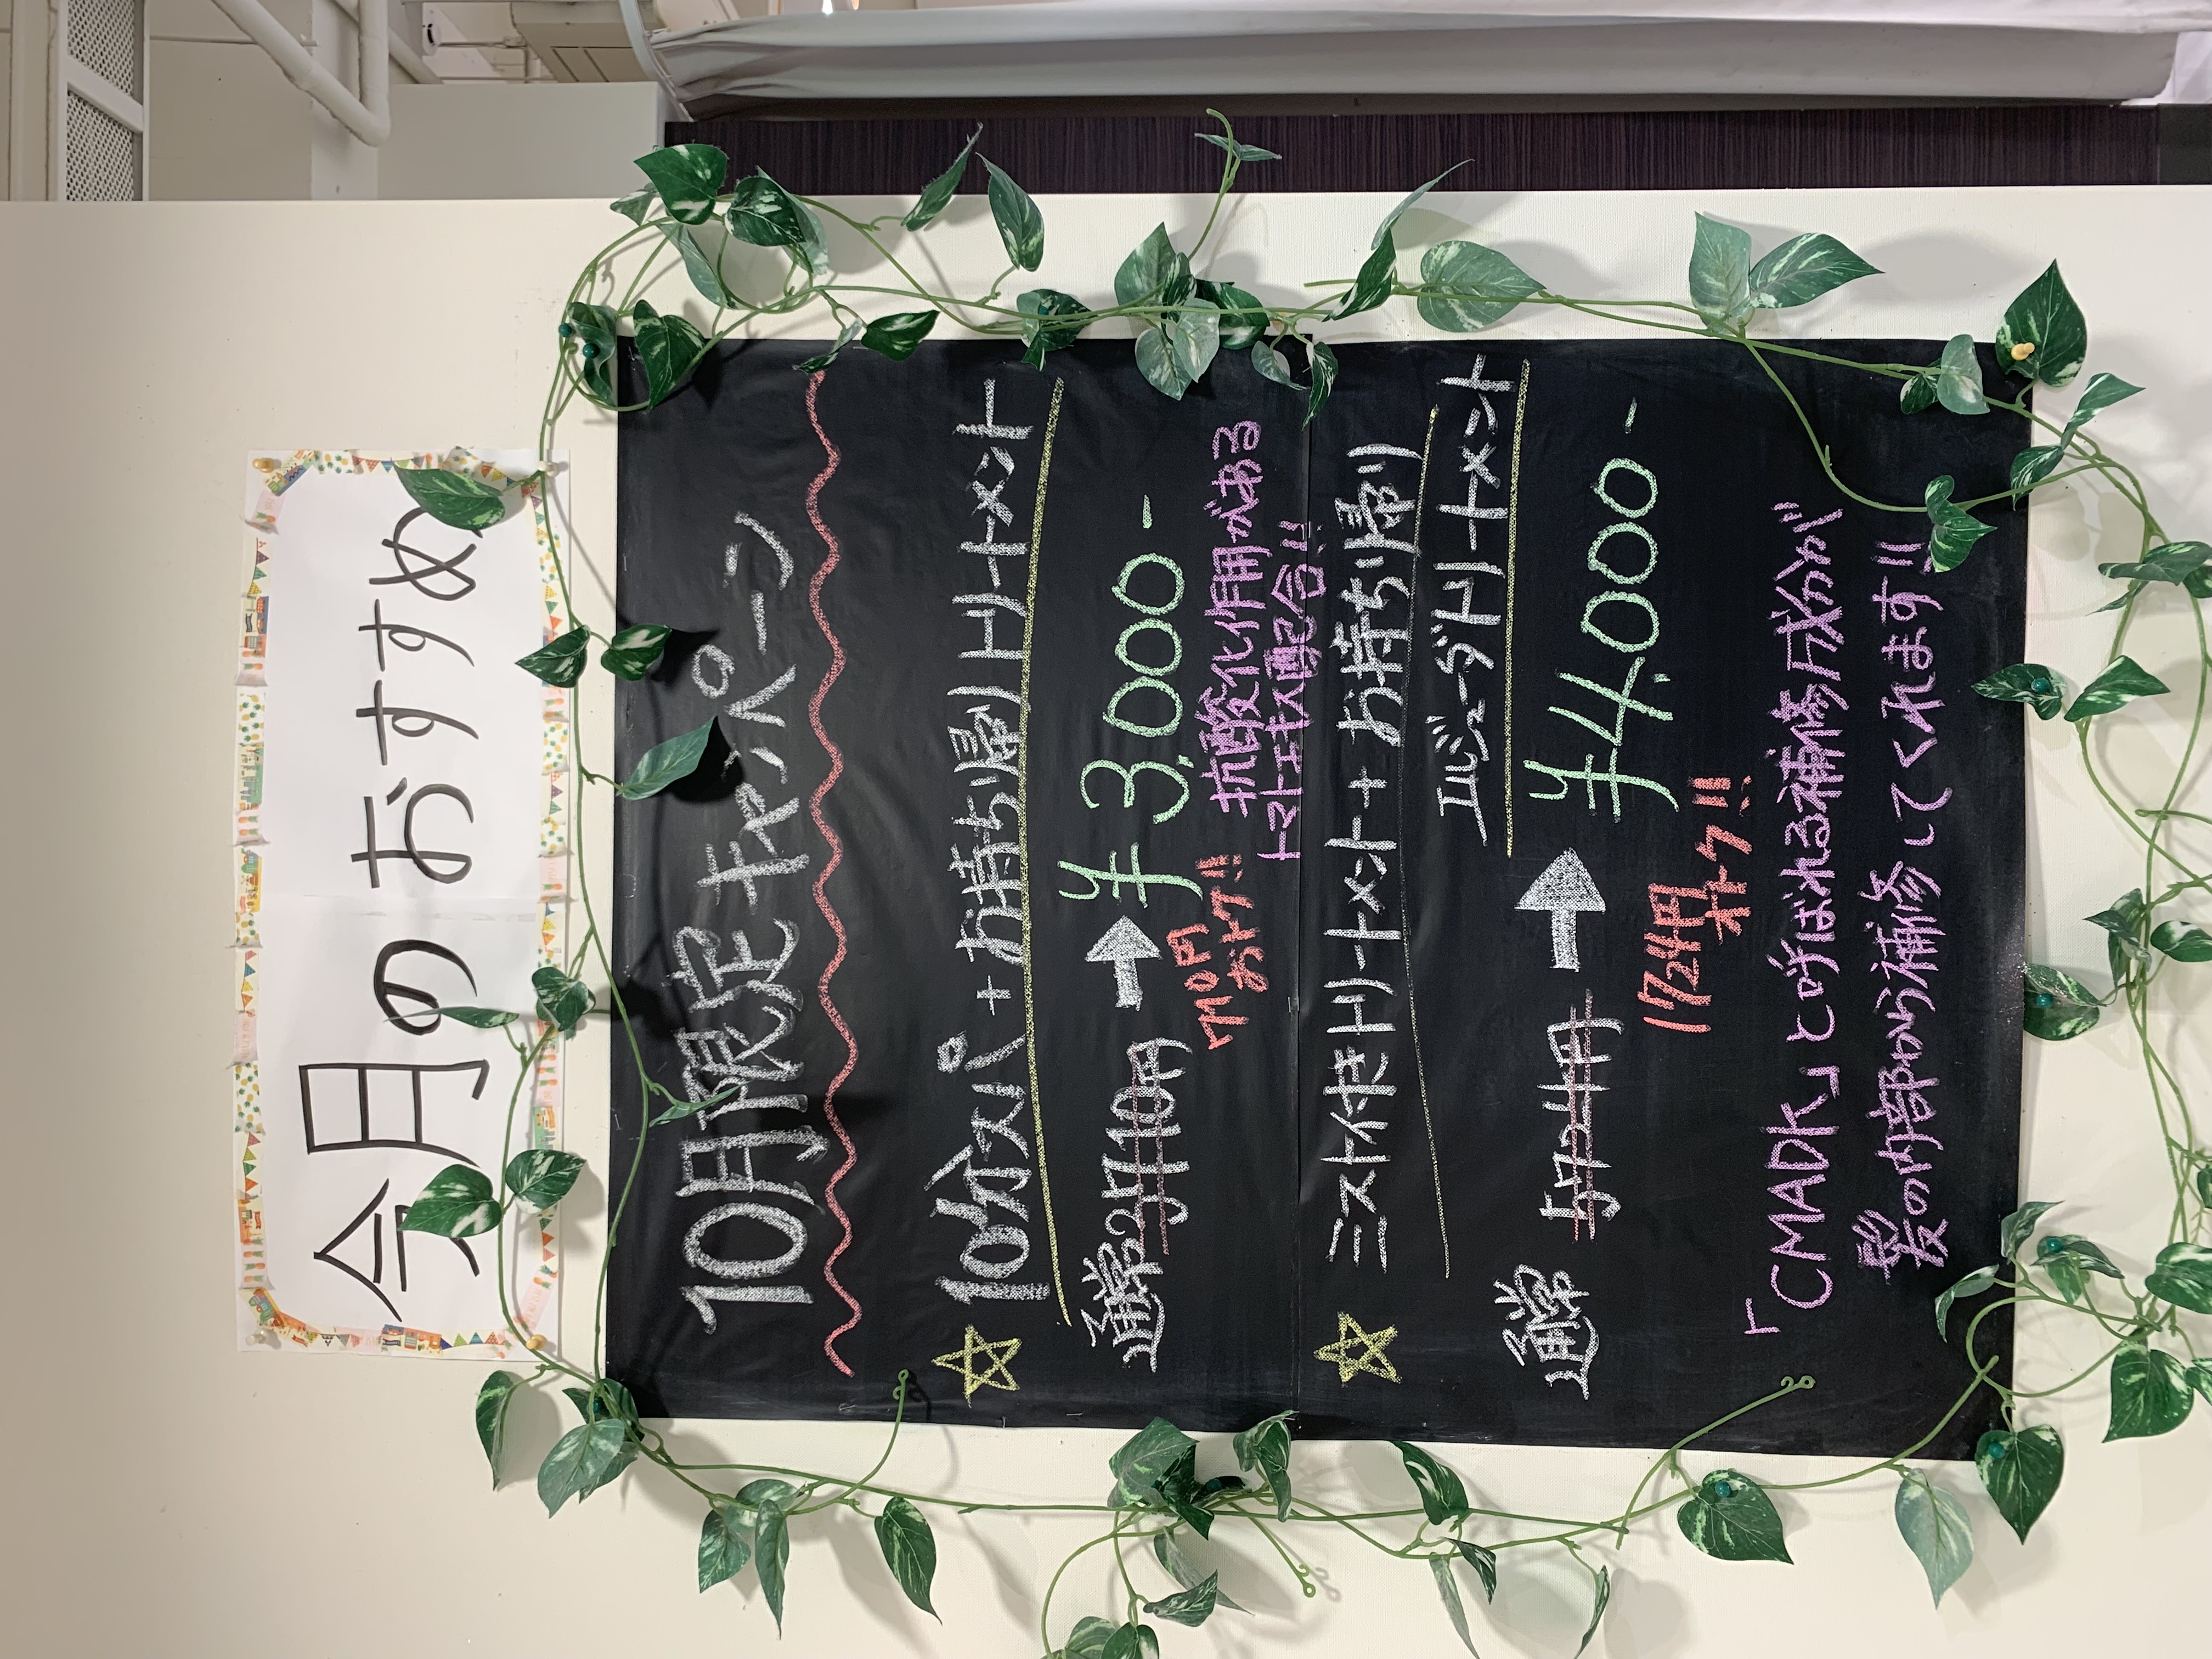 今月のおすすめ
10月限定キャンペーン
☆ 10分スパ + お持ち帰りトリートメント
通常3,710円 → ¥3,000-
710円おトク!!
抗酸化作用がある
トマトエキス配合!!
☆ ミスト付トリートメント + お持ち帰り
エルジューダトリートメント
通常 5,724円 → ¥4,000-
1724円
おトク!!
「CMADK」と呼ばれる補修成分が
髪の内部から補修してくれます!!